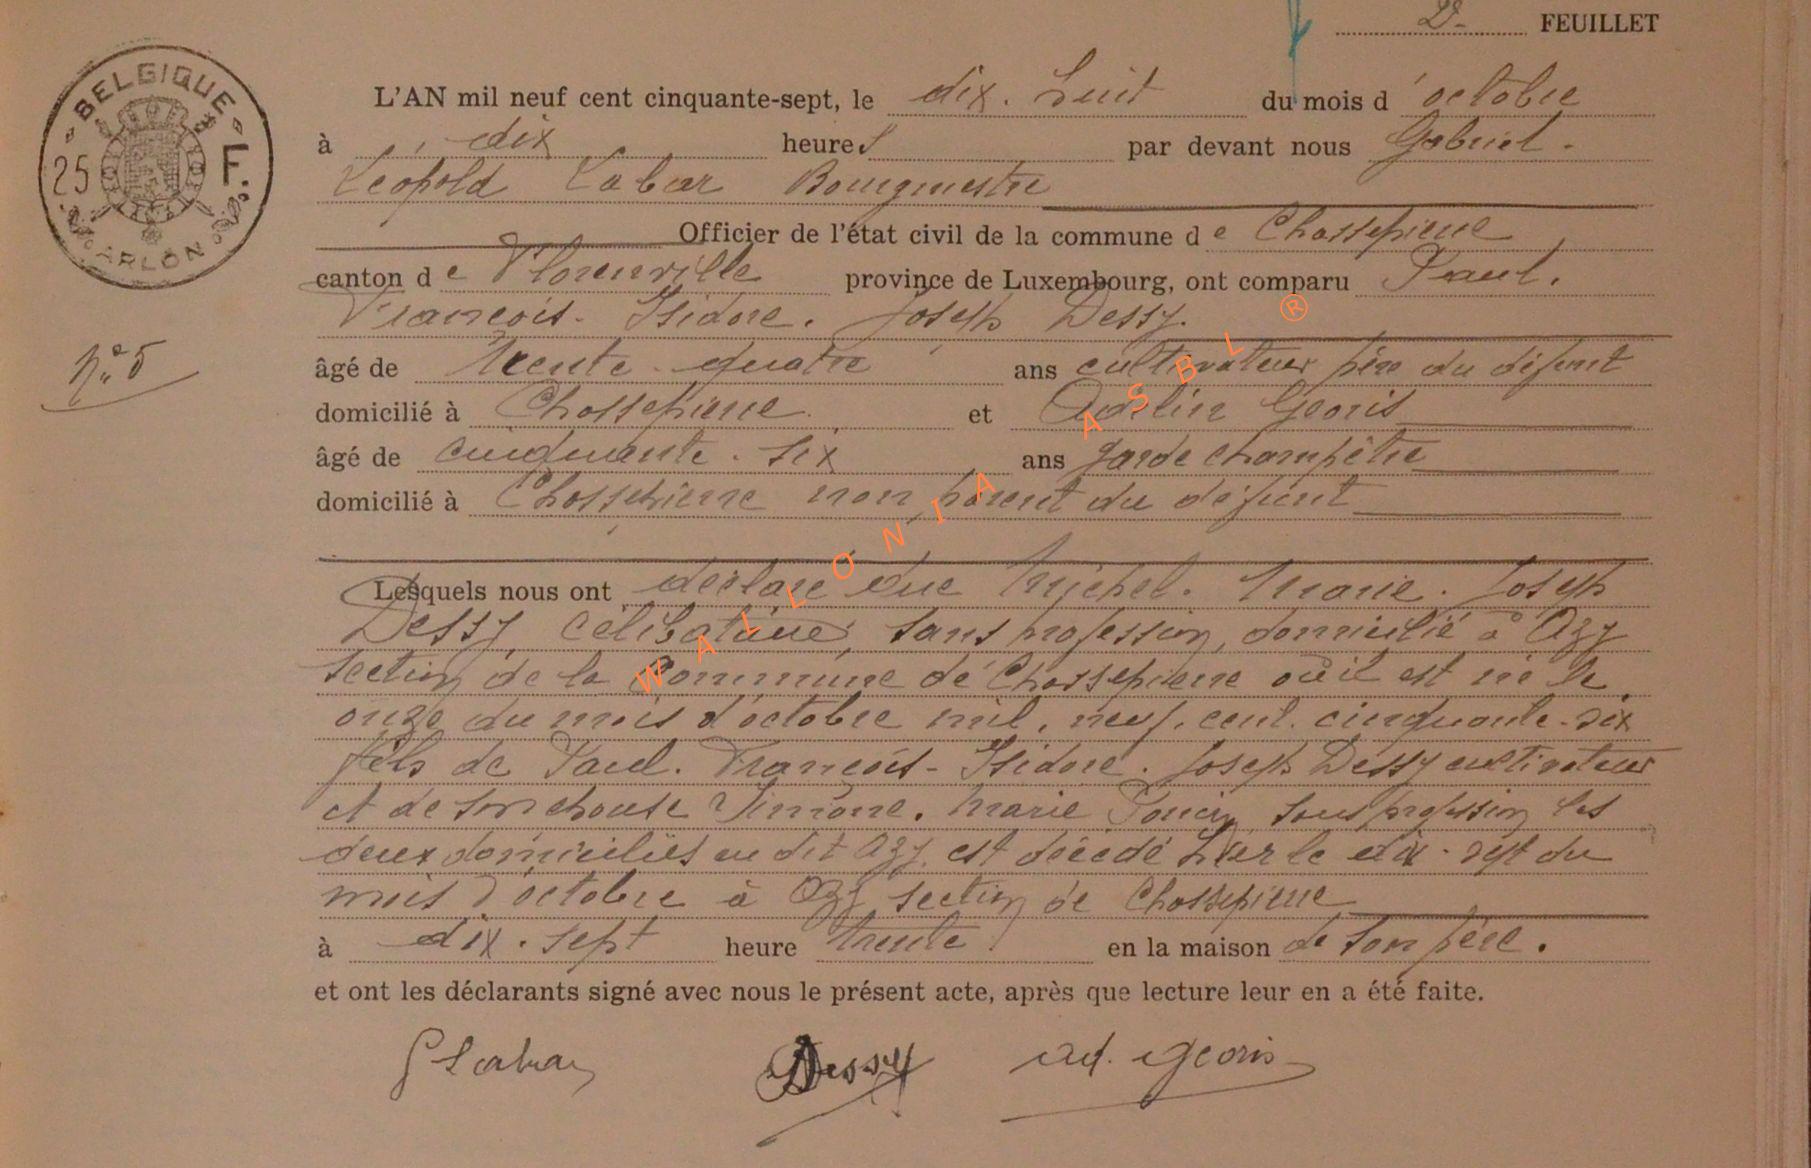 2e FEUILLET
BELGIQUE
25 F.
ARLON
L'AN mil neuf cent cinquante-sept, le dix-huit du mois d'octobre
à dix heures par devant nous Gabriel-
Léopold Labar Bourgmestre
Officier de l'état civil de la commune de Chassepierre
canton de Florenville province de Luxembourg, ont comparu Paul-
François-Isidore-Joseph Dessy.
N° 5
âgé de trente-quatre ans cultivateur père du défunt
domicilié à Chassepierre et Adelin Georis
âgé de cinquante-six ans garde champêtre
domicilié à Chassepierre non parent du défunt
Lesquels nous ont déclaré que Michel-Marie-Joseph
Dessy, célibataire, sans profession, domicilié à Azy
section de la Commune de Chassepierre où il est né le
onze du mois d'octobre mil neuf cent cinquante-six
fils de Paul-François-Isidore-Joseph Dessy cultivateur
et de son épouse Simone-Marie sans profession les
deux domiciliés au dit Azy, est décédé hier le dix-sept du
mois d'octobre à Azy section de Chassepierre
à dix-sept heure trente en la maison de son père.
et ont les déclarants signé avec nous le présent acte, après que lecture leur en a été faite.
GLabar Dessy Ad. Georis
WALLONIA ASBL ®